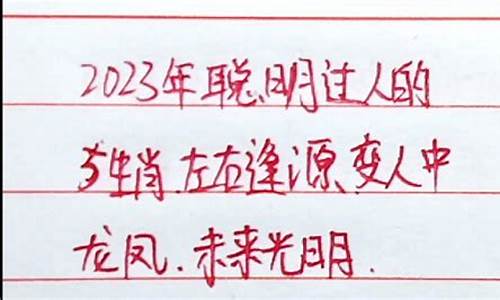 2023年聪明过人的
5生肖.左右逢源.变人中
龙凤.未来光明.